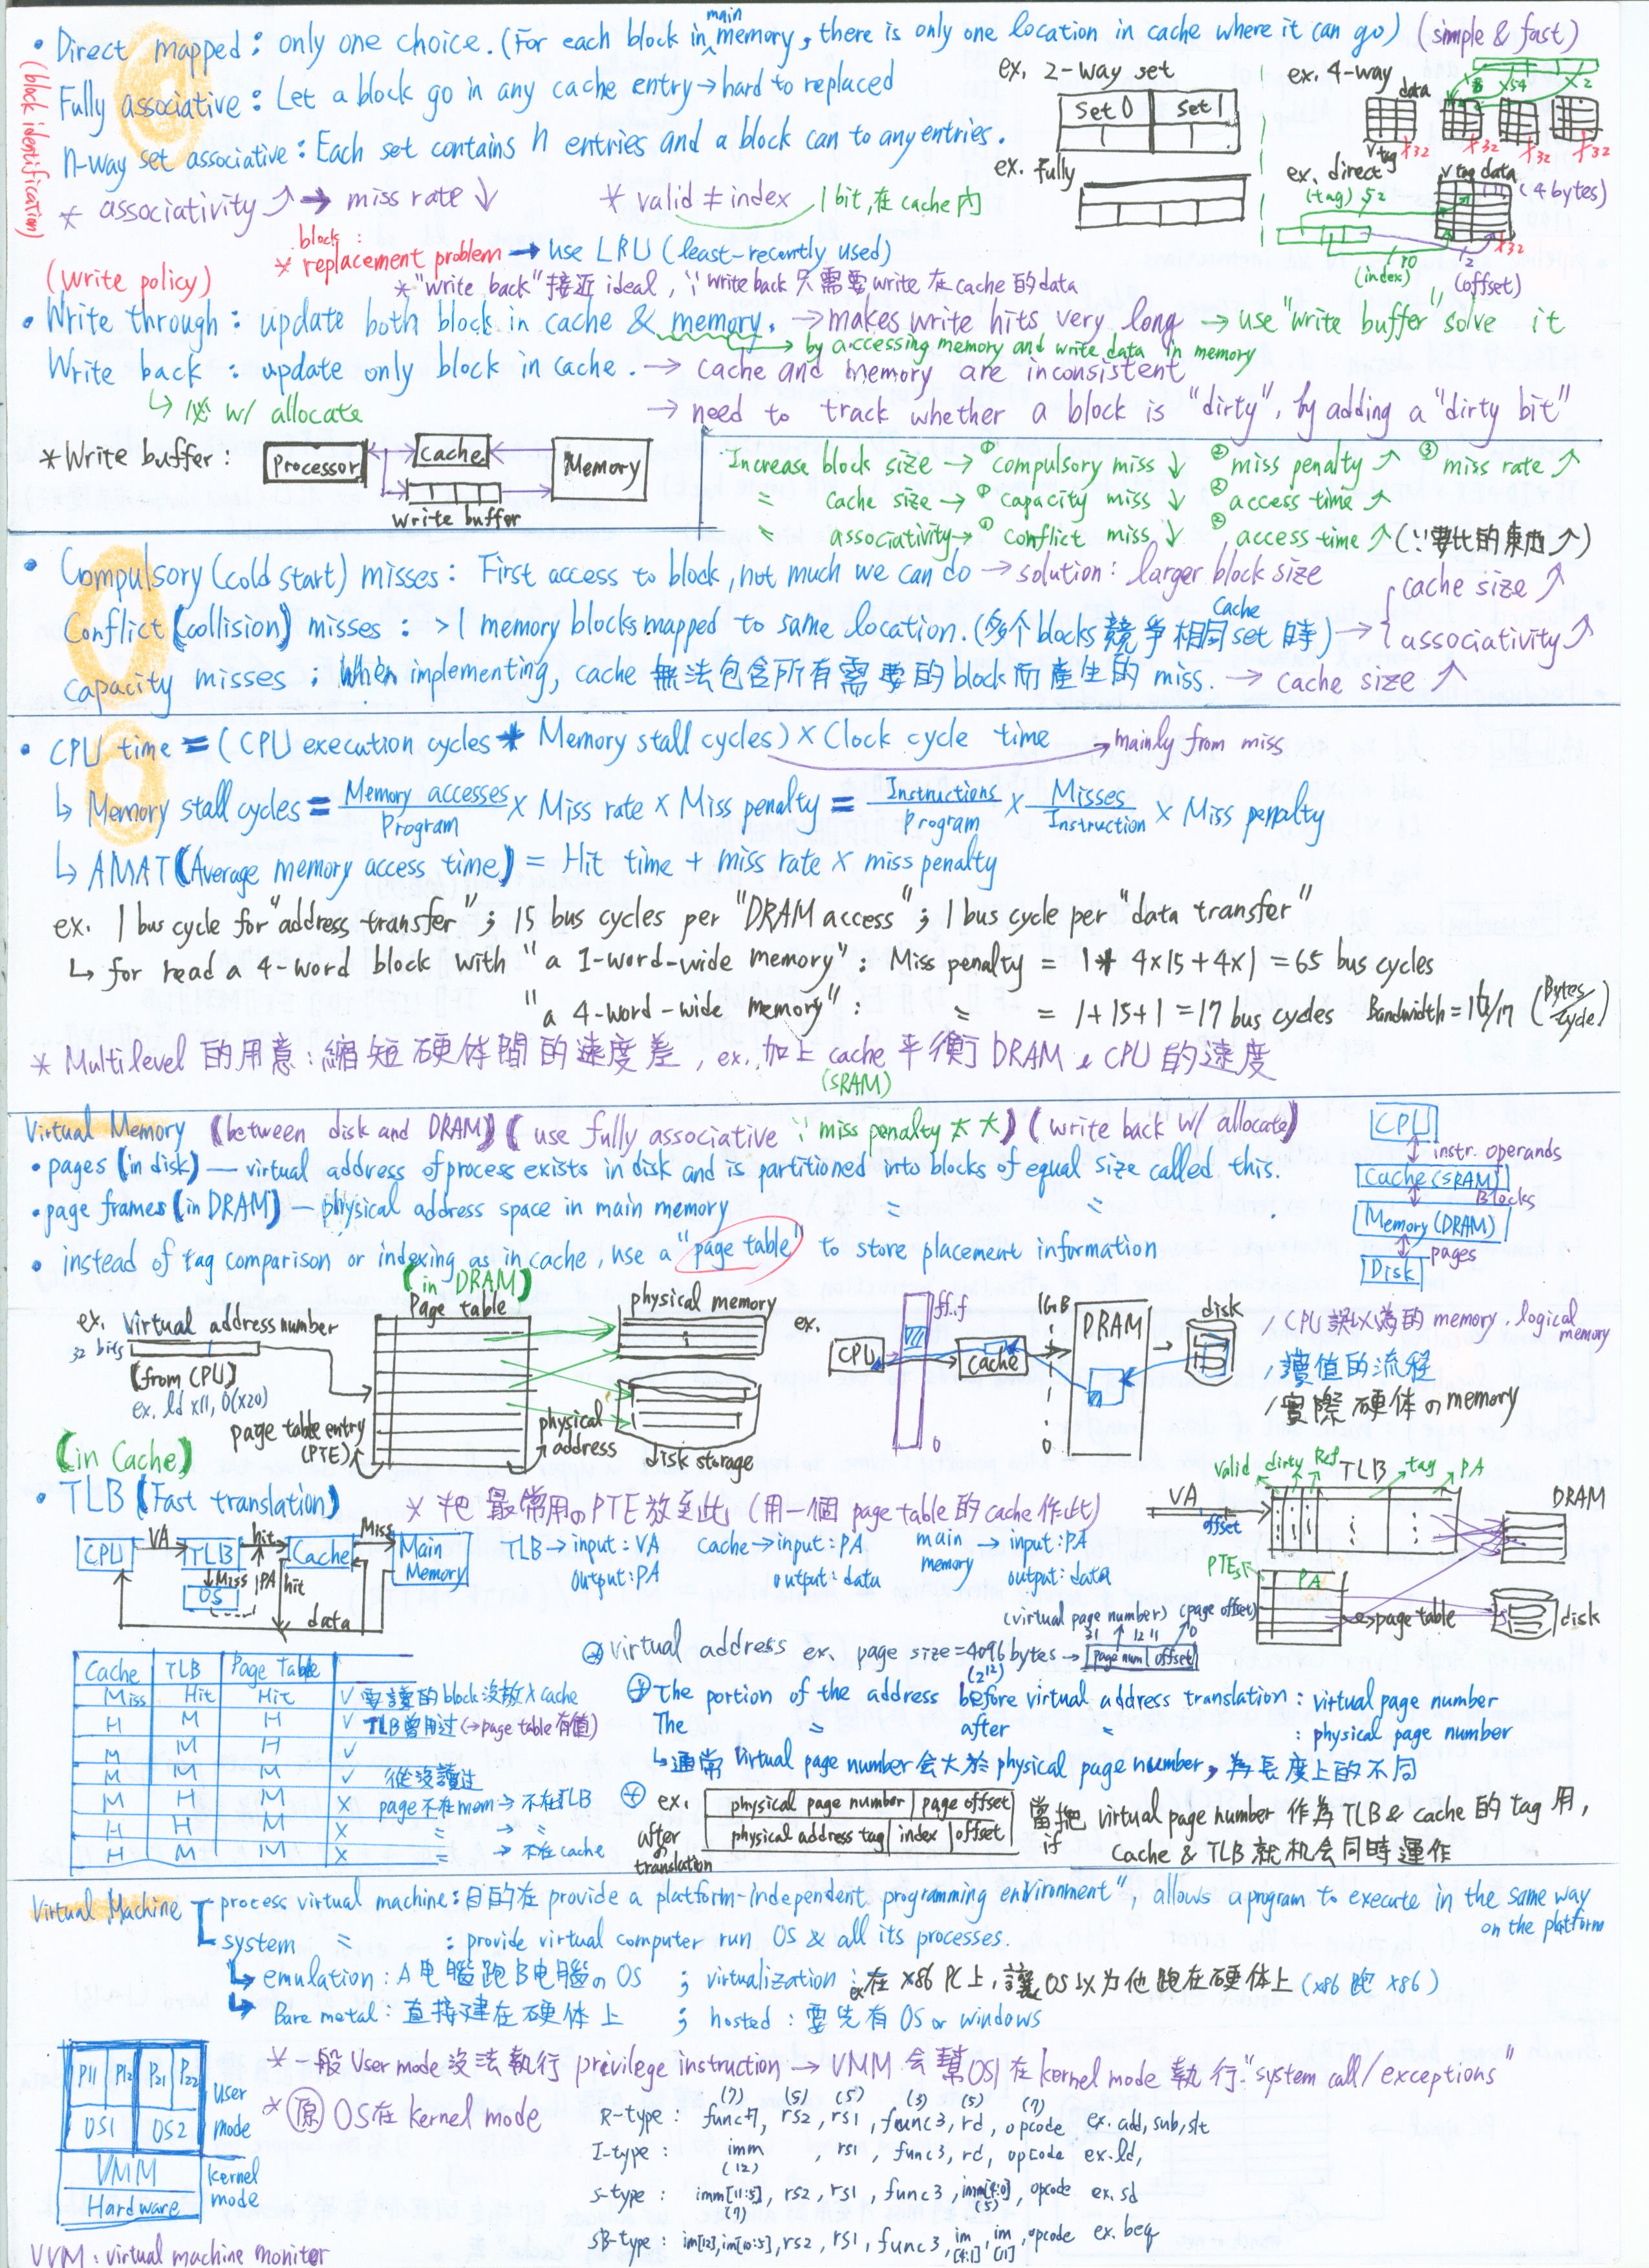 • Direct mapped : only one choice. (For each block in main memory, there is only one location in cache where it can go) (simple & fast)
(block identification)
Fully associative : Let a block go in any cache entry → hard to replaced
n-way set associative : Each set contains n entries and a block can to any entries.
* associativity ↗ → miss rate ↓
* valid ≠ index
1 bit, 在 cache 內
ex. 2-way set
set 0 set 1
ex. fully
ex. 4-way
data
v tag
32 32 32 32
ex. direct
v tag data (4 bytes)
(tag) 52
32
10 (index)
2 (offset)
block :
* replacement problem → use LRU (least-recently used)
(write policy)
* "write back" 接近 ideal, ∵ write back 只需要 write 在 cache 的 data
• Write through : update both block in cache & memory. → makes write hits very long → use "write buffer" solve it
→ by accessing memory and write data in memory
Write back : update only block in cache. → cache and memory are inconsistent
↳ w/ allocate
→ need to track whether a block is "dirty", by adding a "dirty bit"
* Write buffer :
Processor
cache
Memory
write buffer
Increase block size → ① compulsory miss ↓ ② miss penalty ↗ ③ miss rate ↗
= cache size → ① capacity miss ↓ ② access time ↗
= associativity → ① conflict miss ↓ ② access time ↗ (∵ 要比的東西 ↗)
• Compulsory (cold start) misses : First access to block, not much we can do → solution : larger block size
Conflict (collision) misses : > 1 memory blocks mapped to same location. (多個 blocks 競爭相同 Cache set 時) → { cache size ↗
associativity ↗
capacity misses : When implementing, cache 無法包含所有需要的 block 而產生的 miss. → cache size ↗
• CPU time = (CPU execution cycles + Memory stall cycles) × Clock cycle time
→ mainly from miss
↳ Memory stall cycles = Memory accesses / Program × Miss rate × Miss penalty = Instructions / Program × Misses / Instruction × Miss penalty
↳ AMAT (Average memory access time) = Hit time + miss rate × miss penalty
ex. 1 bus cycle for "address transfer" ; 15 bus cycles per "DRAM access" ; 1 bus cycle per "data transfer"
↳ for read a 4-word block with "a 1-word-wide memory" : Miss penalty = 1 + 4×15 + 4×1 = 65 bus cycles
"a 4-word-wide memory" : = = 1+15+1 = 17 bus cycles Bandwidth = 16/17 (Bytes/cycle)
* Multilevel 的用意 : 縮短硬体間的速度差, ex. 加上 cache 平衡 DRAM & CPU 的速度
(SRAM)
Virtual Memory (between disk and DRAM) (use fully associative ∵ miss penalty 太大) (write back w/ allocate)
• pages (in disk) — virtual address of process exists in disk and is partitioned into blocks of equal size called this.
• page frames (in DRAM) — physical address space in main memory = = .
• instead of tag comparison or indexing as in cache, use a "page table" to store placement information
CPU
instr. operands
Cache (SRAM)
Blocks
Memory (DRAM)
pages
Disk
(in DRAM)
Page table
ex. Virtual address number
32 bits
(from CPU)
ex. ld x11, 0(x20)
page table entry
(PTE)
physical memory
physical address
disk storage
ex.
CPU
ff..f
0
Cache
1GB
0
DRAM
disk
/ CPU 誤以為的 memory, logical memory
/ 讀值的流程
/ 實際硬体の memory
(in Cache)
• TLB (Fast translation)
* 把最常用の PTE 放至此 (用一個 page table 的 cache 作此)
CPU VA TLB hit Cache Miss Main Memory
Miss PA hit
OS
data
TLB → input : VA
output : PA
Cache → input : PA
output : data
main memory → input : PA
output : data
valid dirty Ref TLB tag PA
VA
offset
DRAM
PTEs
PA
page table
disk
Cache TLB Page Table
Miss Hit Hit ✓ 要讀的 block 沒放入 cache
H M H ✓ TLB 曾用过 (→ page table 有值)
M M H ✓
M M M ✓ 從沒讀过
M H M × page 不在 mem → 不在 TLB
H H M × = → =
H M M × = → 不在 cache
(virtual page number) (page offset)
31 12 11 0
virtual address ex. page size = 4096 bytes → page num | offset
(2^12)
The portion of the address before virtual address translation : virtual page number
The = after = : physical page number
↳ 通常 virtual page number 会大於 physical page number, 為長度上的不同
ex. physical page number | page offset
after translation
physical address tag | index | offset
當把 virtual page number 作為 TLB & cache 的 tag 用,
if Cache & TLB 就机会同時運作
Virtual Machine
process virtual machine : 目的在 provide a platform-independent programming environment", allows a program to execute in the same way on the platform
system = : provide virtual computer run OS & all its processes.
↳ emulation : A 电腦跑 B 电腦の OS ; virtualization : ex 在 x86 PC 上, 讓 OS 以为他跑在硬体上 (x86 跑 x86)
↳ Bare metal : 直接建在硬体上 ; hosted : 要先有 OS or windows
P11 P12 P21 P22
OS1 OS2
user mode
VMM
Hardware
kernel mode
VVM : virtual machine monitor
* 一般 User mode 沒法執行 privilege instruction → VMM 会幫 OS1 在 kernel mode 執行 "system call / exceptions"
* 原 OS 在 kernel mode
(7) (5) (5) (3) (5) (7)
R-type : func7, rs2, rs1, func3, rd, opcode ex. add, sub, slt
I-type : imm (12), rs1, func3, rd, opcode ex. ld,
S-type : imm[11:5] (7), rs2, rs1, func3, imm[4:0] (5), opcode ex. sd
SB-type : im[12], im[10:5], rs2, rs1, func3, im[4:1], im[11], opcode ex. beq